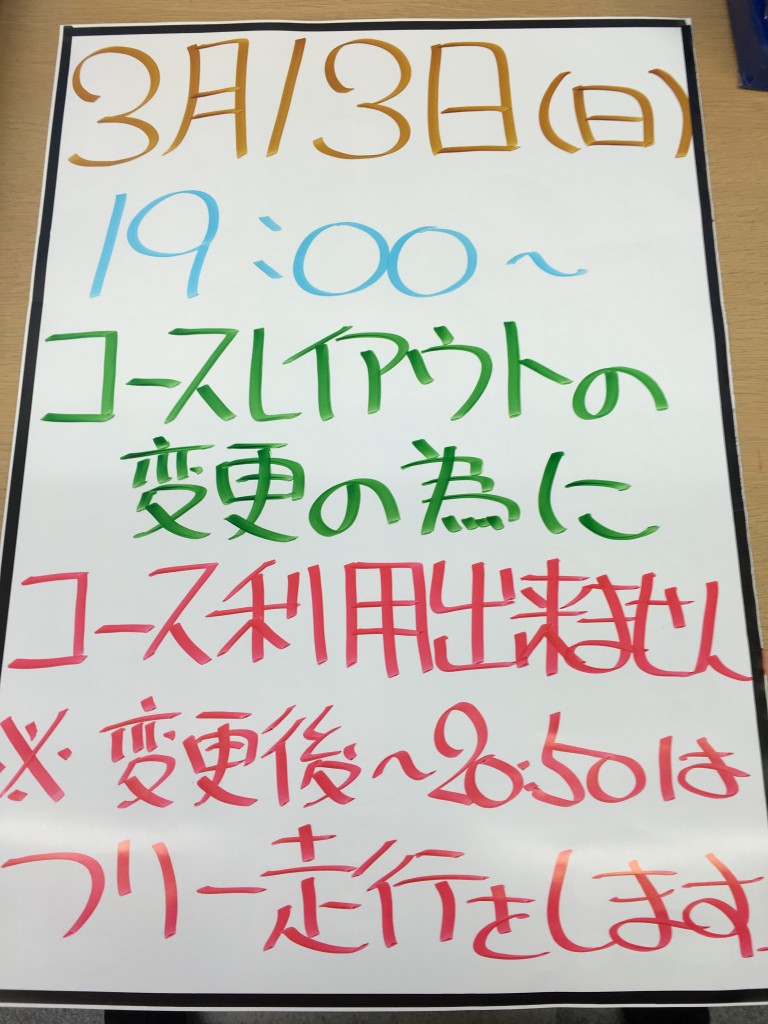 3月13日(日)
19:00~
コースレイアウトの
変更の為に
コース利用出来ません
※変更後~20:50は
フリー走行をします